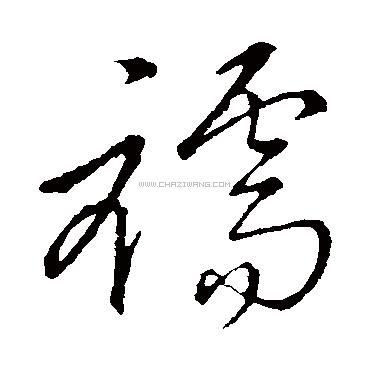 襦
WWW.CHAZIWANG.COM